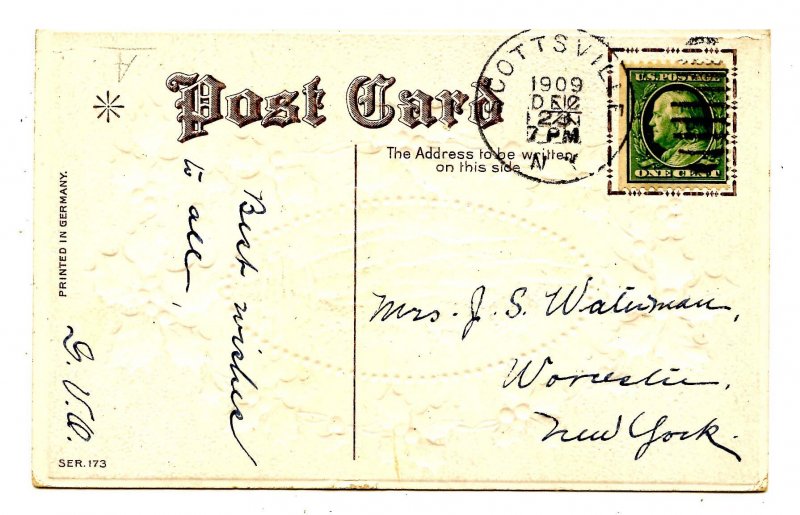 Post Card
The Address to be written
on this side
COTTSVILLE
1909
DEC
7 PM
N Y
U.S. POSTAGE
ONE CENT
PRINTED IN GERMANY.
SER. 173
Best wishes
to all,
Mrs. J. S. Waterman,
Worcester,
New York.